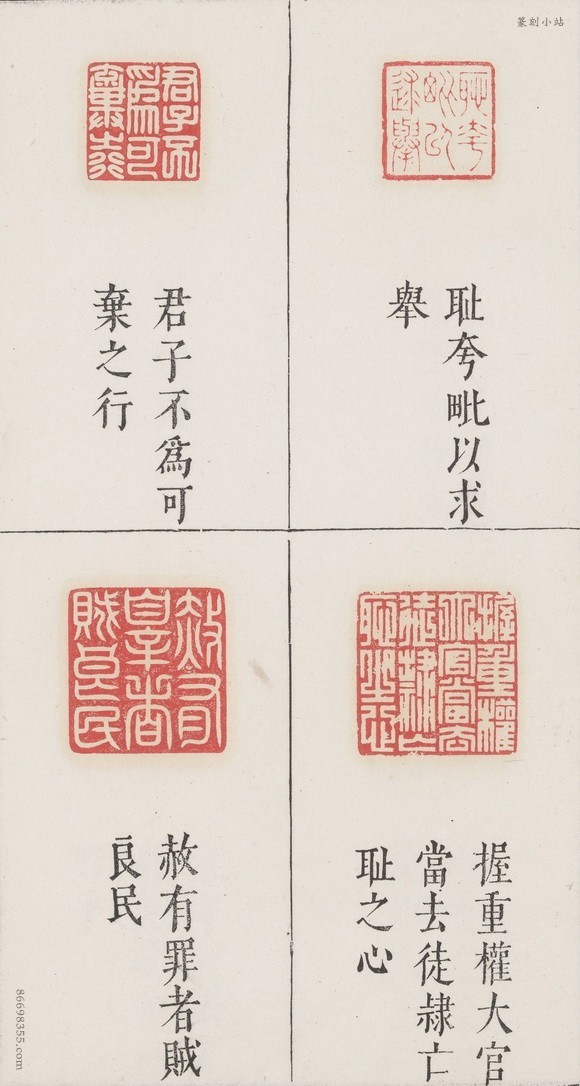 篆刻小站
耻夸毗以求
舉
君子不爲可
棄之行
握重權大官
當去徒隷亡
耻之心
赦有罪者賊
良民
86698355.com